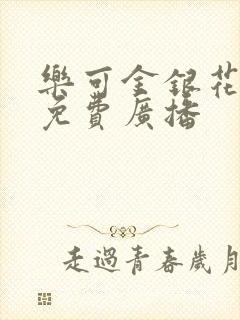 樂可金銀花
免費廣播
走過青春歲月